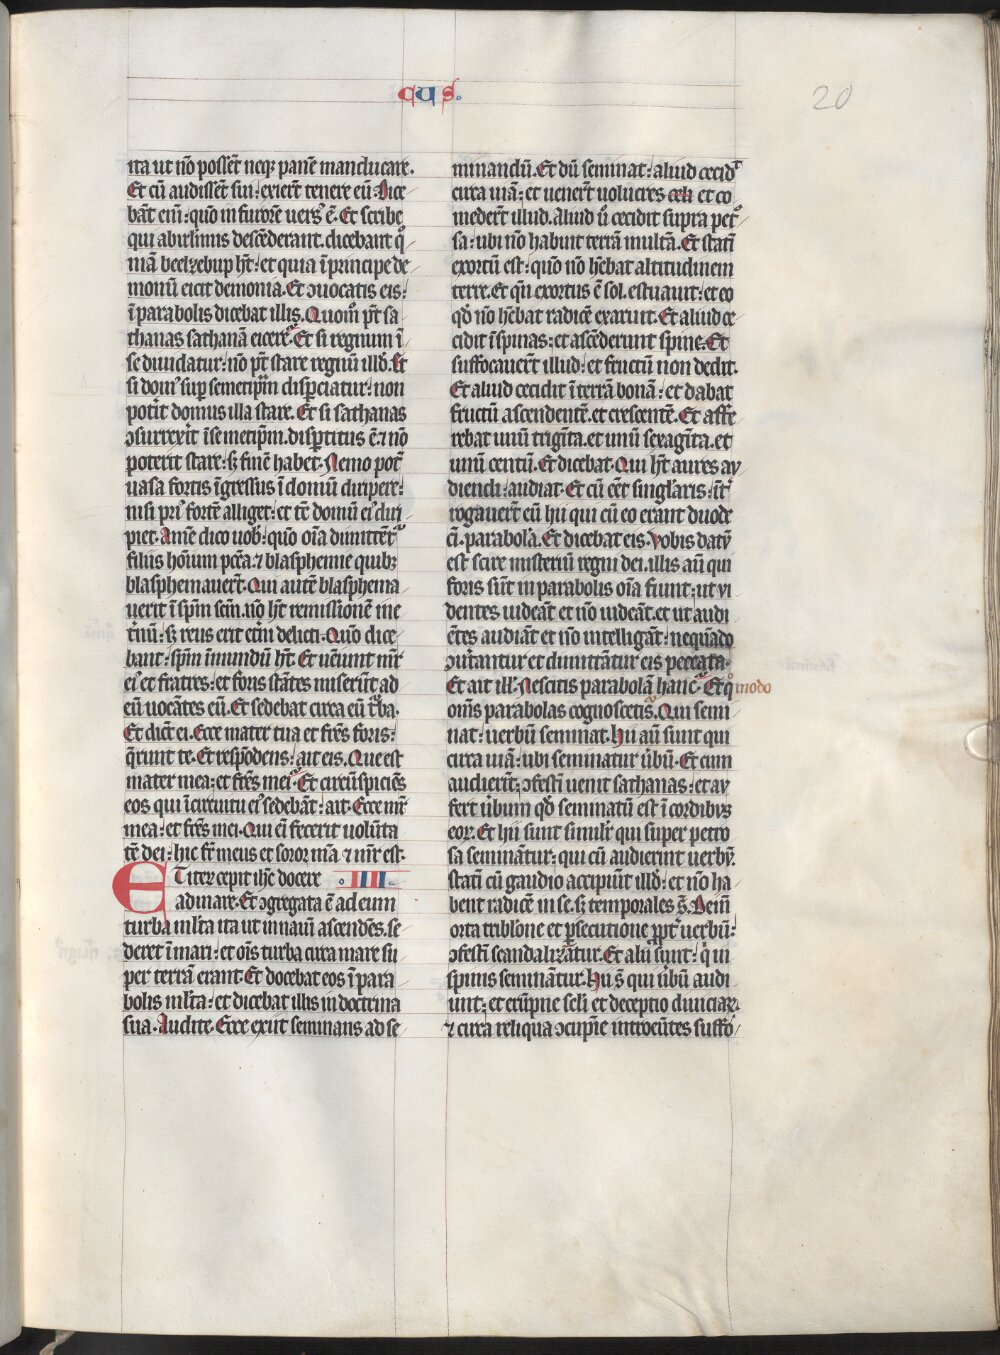 cus.
20
ita ut nō possēt neqȝ panē manducare.
Et cū audissēt sui: exierūt tenere eū. Dice
bāt eni: quō in furorē uers' ē. Et scribe
qui abierl'imis descēderant. dicebant q̄
niā beelzebup ht: et quia ī principe de
moniū eicit demonia. Et ɔuocatis eis:
ī parabolis dicebat illis. Quom̄ pt̄ sa
thanas sathanā eicere. Et si regnum ī
se diuidatur: nō pt̄ stare regnū illđ. Et
si dom' sup semetip̄m disp̄ciatur: non
potit domus illa stare. Et si sathanas
ɔsurrexit ī semetip̄m. disp̄titus ē: ⁊ nō
poterit stare: sȝ finē habet. Nemo pot̄
uasa fortis īgressus ī domū diripere:
nisi pri' fortē alliget: et tē domū ei' diri
piet. Amē dico uob': quō oīa dimittēt'
filiis hōium pc̄ca: ⁊ blasphemie quibȝ
blasphemauert̄. Qui autē blasphema
uerit ī sp̄m sc̄m. nō ht̄ remissionē ine
t̄nū: sȝ reus erit et̄ni delicti. Quō dice
bant: sp̄m īmundū ht̄. Et uēiunt mr̄
ei' et fratres: et foris stātes miserūt ad
eū uocātes eū. Et sedebat circa eū t̄ba.
Et dict̄ ei. Ecce mater tua et frēs foris:
q̄runt te. Et respōdens: ait eis. Que est
mater mea: et frēs mei. Et circūspiciēs
eos qui ī circuitu ei' sedebāt: ait. Ecce mr̄
mea: et frēs mei. Qui ei fecerit uolūta
tē dei: hic fr̄ meus et soror mīa ⁊ mr̄ est.
ETiter cepit ihc̄ docere .IIII.
ad mare. Et ɔgregata ē ad eum
turba ml̄ta ita ut in nauū ascendēs. se
deret ī mari: et oīs turba circa mare su
per terrā erant. Et docebat eos ī para
bolis ml̄ta: et dicebat illis in doctrina
sua. Audite. Ecce exiit seminans ad se
minandū. Et dū seminat: aliud cecid'
circa uiā: et uenert̄ uolucres celi et co
medert̄ illud. Aliud ū cecidit supra pet'
sa: ubi nō habuit terrā multā. Et stati
exortū est: quō nō hēbat altitudinem
terre. Et qn̄ exortus ē sol. estuauit: et eo
qđ nō hēbat radicē exaruit. Et aliud ce
cidit ī spinas: et ascēderunt spine. Et
suffocauert̄ illud: et fructū non dedit.
Et aliud cecidit ī terrā bonā: et dabat
fructū ascendentē. et crescentē. Et affe
rebat unū trigīta. et unū sexagīta. et
unū centū. Et dicebat. Qui ht̄ aures au
diendi: audiat. Et cū eēt singl'aris: īt'
rogauert̄ eū hii qui cū eo erant duode
ci. parabola. Et dicebat eis. Vobis datū
est scire misteriū regni dei. illis aū qui
foris sūt in parabolis oīa fiunt: ut vi
dentes uideāt et nō uideāt. et ut audi
ētes audiāt et nō intelligāt: nequādo
ɔuertantur et dimittātur eis peccata.
Et ait ill'. Nescitis parabolā hanc. Et q̊modo
omīs parabolas cognoscetis. Qui semi
nat: uerbū seminat. Hii aū sunt qui
circa uiā: ubi seminatur ūbū. Et cum
audierīt: ɔfestī uenit sathanas: et au
fert ūbum qđ seminatū est ī cordibus
eoꝝ. Et hii sunt simil'r qui super petro
sa semināтur: qui cū audierint uerbū.
statī cū gaudio accipiūt illđ: et nō ha
bent radicē in se. sȝ temporales s̄. Deiñ
orta tribl'one et ꝑsecutione ꝓpt' uerbū:
ɔfestī scandalizātur. Et alii sunt: q̄ in
spinis semināntur. Hii s̄ qui ūbū audi
unt: et erūpne scl'i et deceptio diuiciaꝝ
⁊ circa reliqua ɔcupīe introeūtes suffo